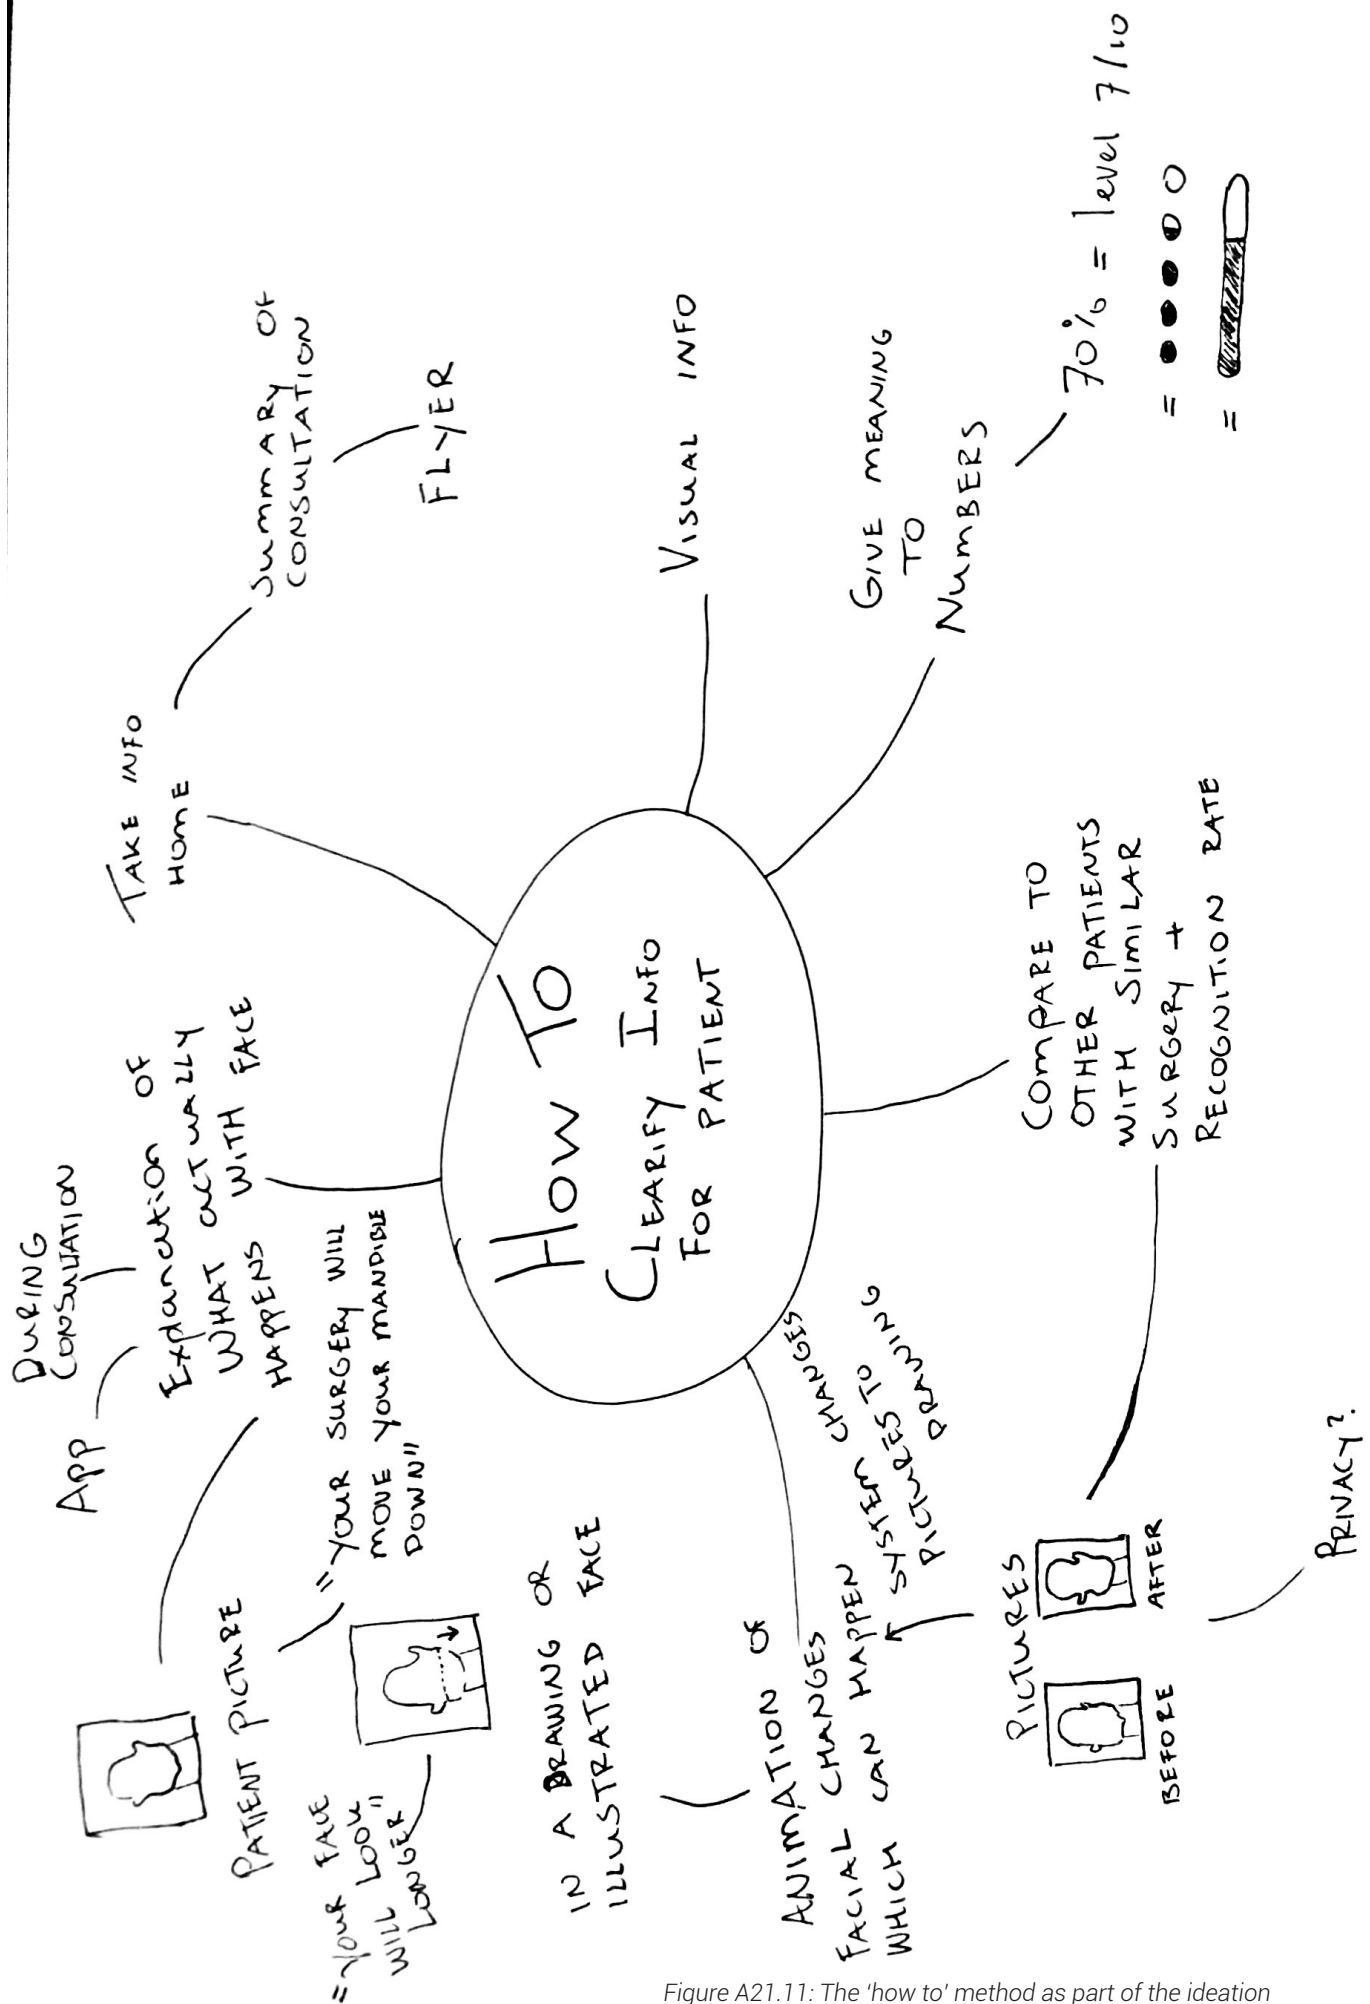 How To
CLEARIFY INFO
FOR PATIENT
TAKE INFO
HOME
SUMMARY OF
CONSULTATION
FLYER
VISUAL INFO
GIVE MEANING
TO
NUMBERS
70% = level 7/10
=
=
COMPARE TO
OTHER PATIENTS
WITH SIMILAR
SURGERY +
RECOGNITION RATE
PICTURES
BEFORE
AFTER
PRIVACY?
SYSTEM CHANGES CHANGES
PICTURES TO
DRAWING
ANIMATION OF
FACIAL CHANGES
WHICH CAN HAPPEN
IN A DRAWING OR
ILLUSTRATED FACE
DURING
CONSULTATION
APP
Explanation OF
WHAT ACTUALLY
HAPPENS WITH FACE
PATIENT PICTURE
"YOUR SURGERY WILL
MOVE YOUR MANDIBLE
DOWN"
="YOUR FACE
WILL LOOK
LONGER"
Figure A21.11: The 'how to' method as part of the ideation